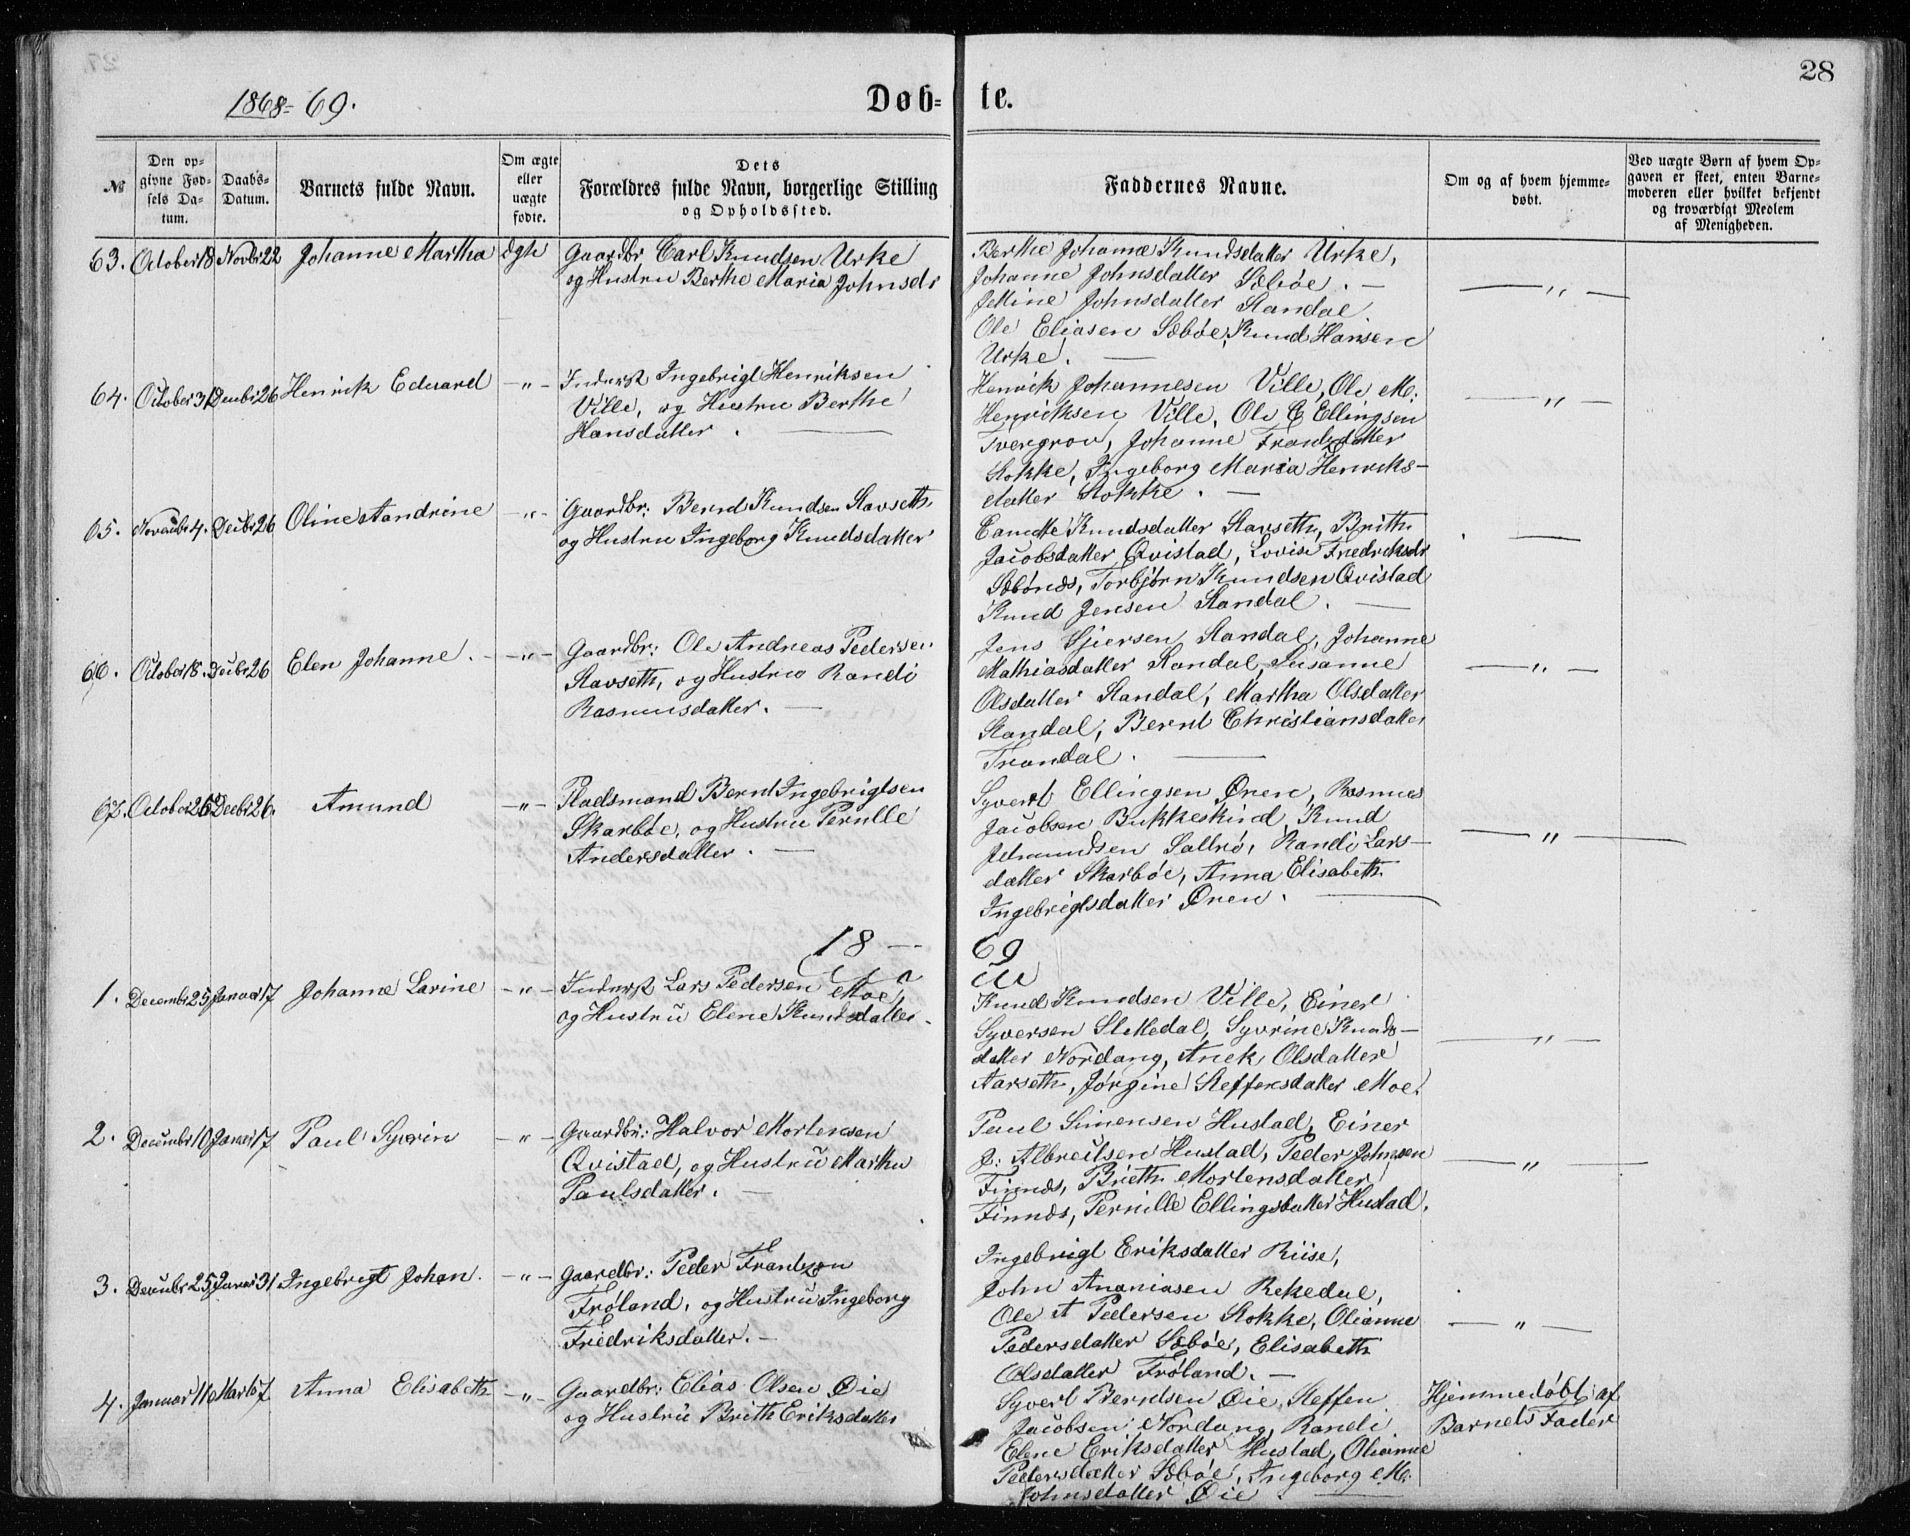 28
1868-69.
Døb- te.
№
Den opgivne Fødsels Datum.
Daabs-Datum.
Barnets fulde Navn.
Om ægte eller uægte fødte.
Dets Forældres fulde Navn, borgerlige Stilling og Opholdssted.
Faddernes Navne.
Om og af hvem hjemmedøbt.
Ved uægte Børn af hvem Opgaven er skeet, enten Barnemoderen eller hvilket bekjendt og troværdigt Medlem af Menigheden.
63. October 18 Novbr 22 Johanne Martha ægte
Gaardbr Carl Knudsen Urke
og Hustru Berthe Maria Johnsdr
Berthe Johanne Knudsdatter Urke,
Johanne Johnsdatter Sæbøe. —
Jettine Johnsdatter Standal
Ole Eliasen Sæbøe, Knud Hansen
Urke. —
— " —
64. October 31 Decbr 26 Henrik Edvard — " —
Inderst Ingebrigt Henriksen
Ville, og Hustru Berthe
Hansdatter. —
Henrik Johannesen Ville, Ole M.
Henriksen Ville, Ole E Ellingsen
Tvergrov, Johanne Frantzdatter
Stokke, Ingeborg Maria Henriks-
datter Stokke. —
— " —
65. Novembr 4. Decbr 26 Oline Sandrine — " —
Gaardbr: Bernd Knudsen Stavseth
og Hustru Ingeborg Knudsdatter
Knudsdatter Stavseth, Brith
Jacobsdatter Qvistad, Lovise Fredriksdr
Sæbønæs, Torbjørn Knudsen Qvistad
Knud Jensen Standal. —
66. October 18. Decbr 26 Elen Johanne. — " —
Gaardbr: Ole Andreas Pedersen
Stavseth, og Hustru Randi
Rasmusdatter. —
Jens Sjursen Standal, Johanne
Mathiasdatter Standal, Susanne
Olsdatter Standal, Martha Olsdatter
Standal, Bernt Christiansdatter
Trandal. —
— " —
67. October 26 Decbr 26. Amund — " —
Pladsmand Bernt Ingebrigtsen
Skarbøe, og Hustru Pernille
Andersdatter. —
Syvert Ellingsen Øren, Rasmus
Jacobsen Bukkeskind, Knud
Sallrø, Randi Lars-
datter Skarbøe, Anna Elisabeth
Ingebrigtsdatter Øren. —
— " —
18 — 69
1. Decembr 25 Januar 17 Johanne Larine — " —
Inderst Lars Pedersen Moe
og Hustru Elene Knudsdatter.
Knud Knudsen Ville, Einer
Syversen Slettedal, Syvrine Knuds-
datter Nordang, Anek Olsdatter
Aarseth, Jørgine Steffensdatter Moe.
— " —
2. Decembr 10 Januar 17 Paul Syvrin — " —
Gaardbr: Halvor Mortensen
Qvistad, og Hustru Martha
Paulsdatter. —
Paul Simensen Hustad, Einer
J: Albreitsen Hustad, Peder Johnsen
Finnæs, Brith Mortensdatter
Finnæs, Pernille Ellingsdatter Hustad.
— " —
3. Decembr 25 Januar 31 Ingebrigt Johan. — " —
Gaardbr: Peder Frantzen
Frøland, og Hustru Ingeborg
Fredriksdatter. —
Ingebrigt Eriksdatter Riise,
John Ananiasen Rekedal,
Ole A Pedersen Stokke, Olianne
Pedersdatter Sæbøe, Elisabeth
Olsdatter Frøland. —
— " —
4. Januar 11 Marts 7 Anna Elisabeth — " —
Gaardbr: Elias Olsen Øie
og Hustru Brith Eriksdatter
Syvert Berndsen Øie, Steffen
Jacobsen Nordang, Randi
Elene Eriksdatter Hustad, Olianne
Pedersdatter Sæbøe, Ingeborg M.
Johnsdatter Øie. —
Hjemmedøbt af
Barnets Fader